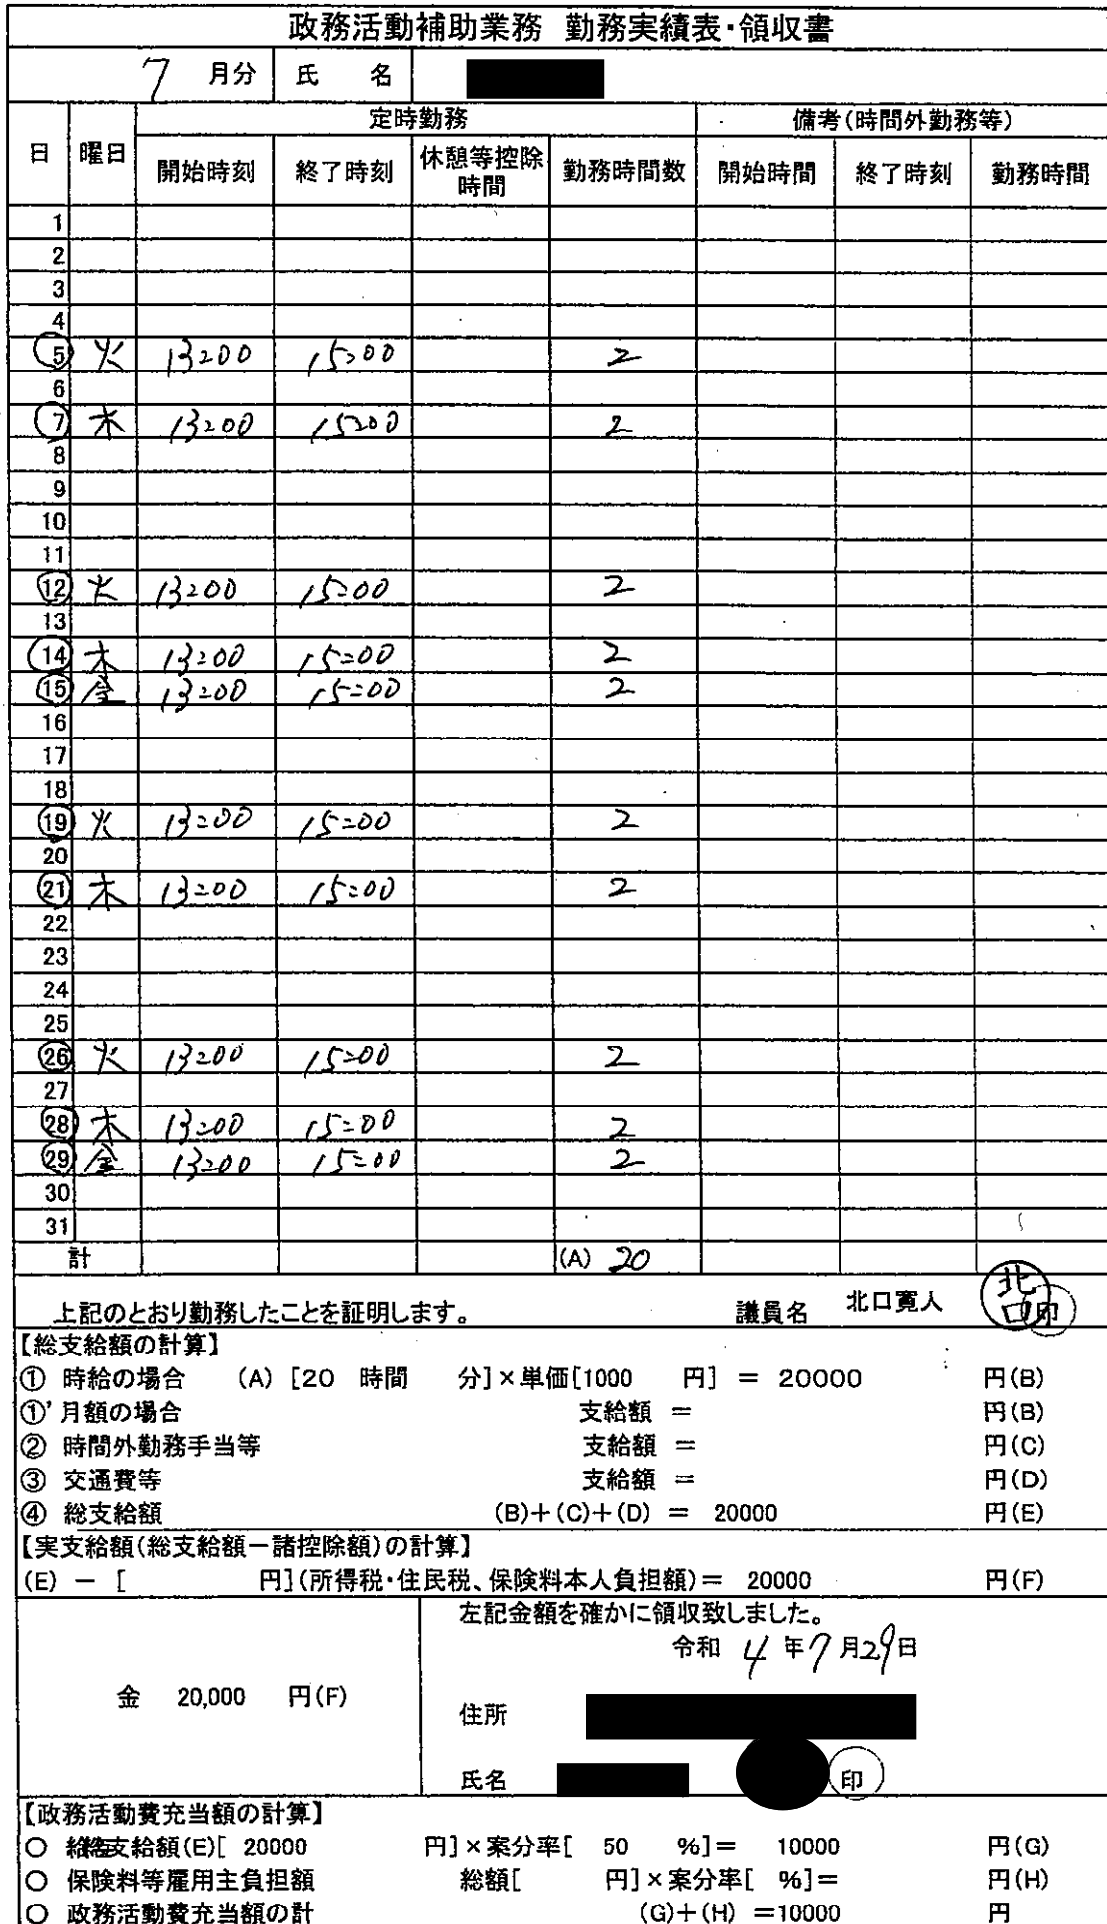 政務活動補助業務 勤務実績表・領収書
7 月分 氏 名
日 曜日 定時勤務 備考(時間外勤務等)
開始時刻 終了時刻 休憩等控除時間 勤務時間数 開始時間 終了時刻 勤務時間
1
2
3
4
5 火 13:00 15:00 2
6
7 木 13:00 15:00 2
8
9
10
11
12 火 13:00 15:00 2
13
14 木 13:00 15:00 2
15 金 13:00 15:00 2
16
17
18
19 火 13:00 15:00 2
20
21 木 13:00 15:00 2
22
23
24
25
26 火 13:00 15:00 2
27
28 木 13:00 15:00 2
29 金 13:00 15:00 2
30
31
計 (A) 20
上記のとおり勤務したことを証明します。 議員名 北口寛人 北口 印
【総支給額の計算】
① 時給の場合 (A) [20 時間 分]×単価[1000 円] = 20000 円(B)
①'月額の場合 支給額 = 円(B)
② 時間外勤務手当等 支給額 = 円(C)
③ 交通費等 支給額 = 円(D)
④ 総支給額 (B)+(C)+(D) = 20000 円(E)
【実支給額(総支給額-諸控除額)の計算】
(E) - [ 円](所得税・住民税、保険料本人負担額)= 20000 円(F)
金 20,000 円(F)
左記金額を確かに領収致しました。
令和 4 年 7 月 29 日
住所
氏名 印
【政務活動費充当額の計算】
○ 総支給額(E)[ 20000 円]×案分率[ 50 %]= 10000 円(G)
○ 保険料等雇用主負担額 総額[ 円]×案分率[ %]= 円(H)
○ 政務活動費充当額の計 (G)+(H) =10000 円